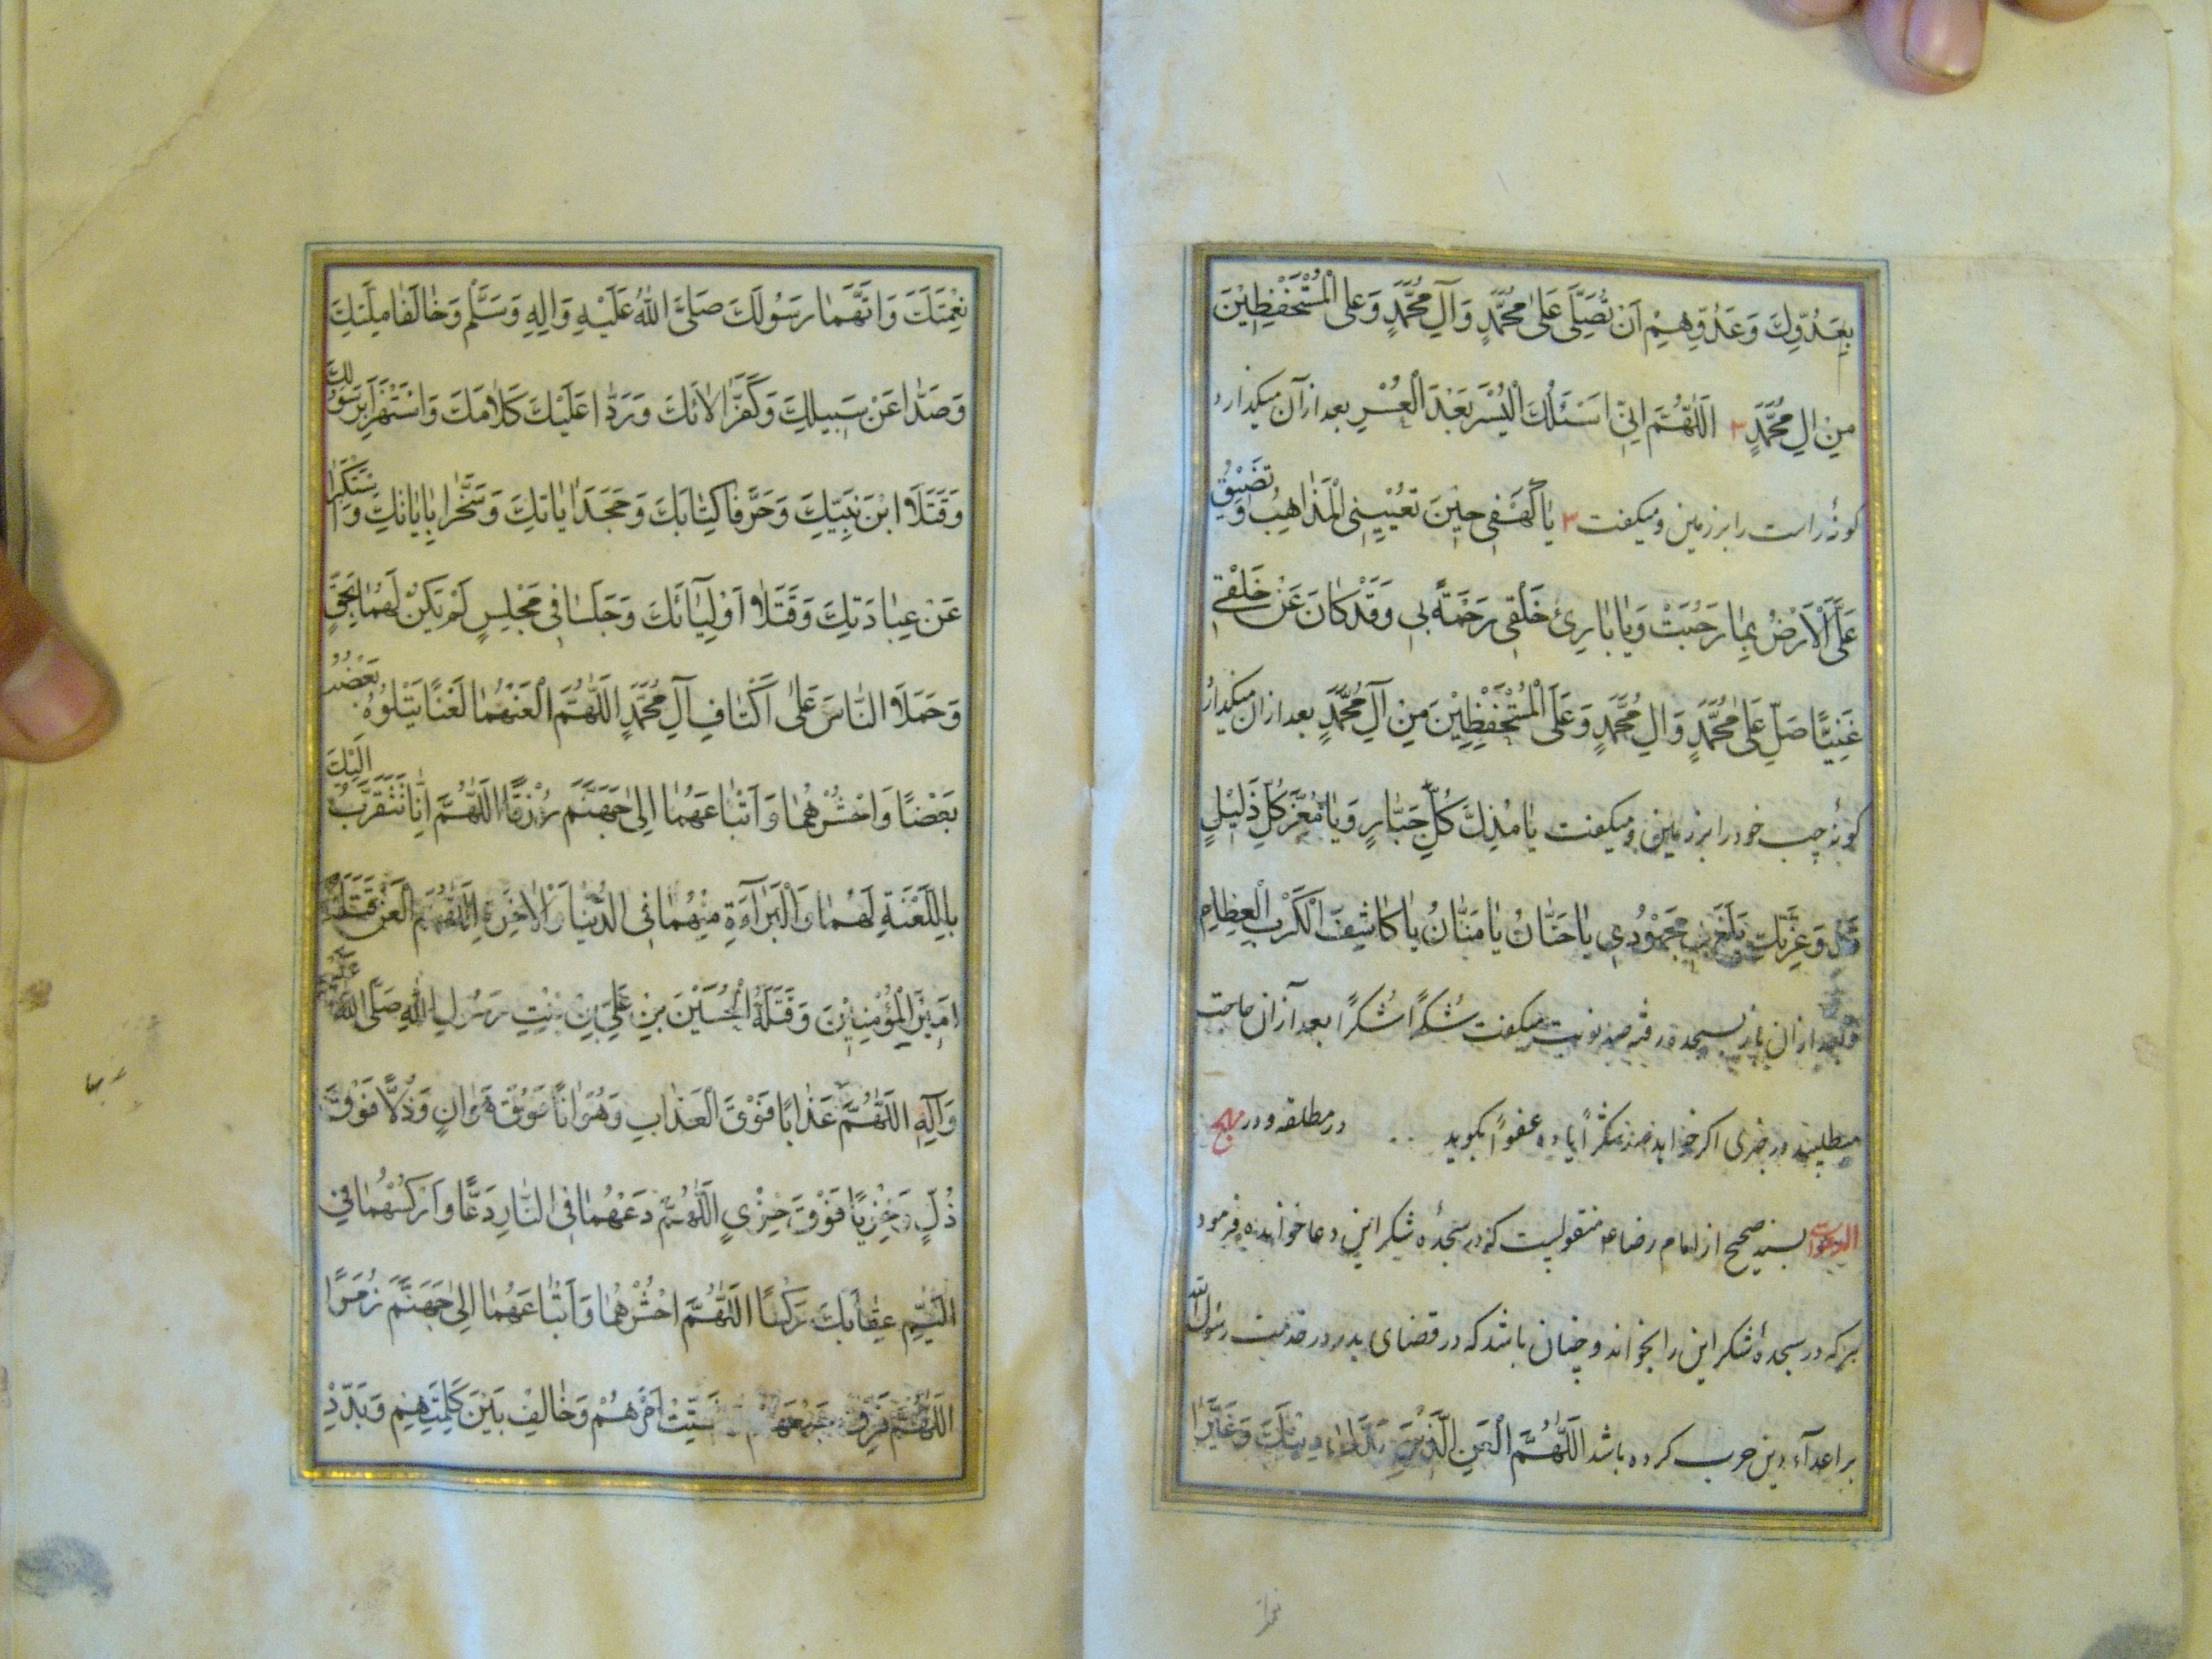 بِعَدُوِّكَ وَعَدُوِّهِمْ اَنْ تُصَلِّىَ عَلىٰ مُحَمَّدٍ وَآلِ مُحَمَّدٍ وَعَلَى الْمُسْتَحْفَظِيْنَ
مِنْ الِ مُحَمَّدٍ ٣ اَللّٰهُمَّ اِنِّى اَسْئَلُكَ الْيُسْرَ بَعْدَ الْعُسْرِ بعد از آن میکذارد
کونهٔ راست را بر زمین و میکفت ٣ يٰا كَهْفِى حِيْنَ تُعْيِيْنِى الْمَذٰاهِبُ وَتَضِيْقُ
عَلَىَّ الْاَرْضُ بِمٰا رَحُبَتْ وَيٰا بٰارِئَ خَلْقِى رَحْمَةً بِى وَقَدْ كٰانَ عَنْ خَلْقِى
غَنِيًّا صَلِّ عَلىٰ مُحَمَّدٍ وَالِ مُحَمَّدٍ وَعَلَى الْمُسْتَحْفَظِيْنَ مِنْ آلِ مُحَمَّدٍ بعد از ان میکذارد
کونهٔ چپ خود را بر زمین و میکفت يٰا مُذِلَّ كُلِّ جَبّٰارٍ وَيٰا مُعِزَّ كُلِّ ذَلِيْلٍ
قَدْ وَعِزَّتِكَ بَلَغَ مَجْهُوْدِى يٰا حَنّٰانُ يٰا مَنّٰانُ يٰا كٰاشِفَ الْكَرْبِ الْعِظٰامِ
و بعد از ان باز بسجده رفته صد نوبت میکفت شُكْرًا شُكْرًا بعد از ان حاجت
میطلبید اکر خواهد صد شکراً یا عفواً بکوید در مطلقه و در مهج
الدعوات بسند صحیح از امام رضا ع منقولیست که در سجدهٔ شکر این دعا خوانده فرمود
هر که در سجدهٔ شکر این را بخواند و چنان باشد که در قضای بدر در خدمت رسول الله
بر اعدآء دین حرب کرده باشد اَللّٰهُمَّ الْعَنِ الَّذَيْنِ بَدَّلٰا دِيْنَكَ وَغَيَّرٰا
نِعْمَتَكَ وَاتَّهَمٰا رَسُولَكَ صَلَّى اللهُ عَلَيْهِ وَالِهِ وَسَلَّمَ وَخٰالَفٰا مِلَّتَكَ
وَصَدّٰا عَنْ سَبِيلِكَ وَكَفَرٰا الٰائَكَ وَرَدّٰا عَلَيْكَ كَلٰامَكَ وَاسْتَهْزَاٰ بِرَسُولِكَ
وَقَتَلٰا ابْنَ نَبِيِّكَ وَحَرَّفٰا كِتٰابَكَ وَجَحَدٰا اٰيٰاتِكَ وَسَخِرٰا بِاٰيٰاتِكَ وَاسْتَكْبَرٰا
عَنْ عِبٰادَتِكَ وَقَتَلٰا اَوْلِيٰآئَكَ وَجَلَسٰا فِى مَجْلِسٍ لَمْ يَكُنْ لَهُمٰا بِحَقٍّ
وَحَمَلَا النّٰاسَ عَلىٰ اَكْتٰافِ آلِ مُحَمَّدٍ اَللّٰهُمَّ الْعَنْهُمٰا لَعْنًا يَتْلُوْهُ بَعْضُهُ
بَعْضًا وَاحْشُرْهُمٰا وَاَتْبٰاعَهُمٰا اِلىٰ جَهَنَّمَ زُرْقًا اَللّٰهُمَّ اِنّٰا نَتَقَرَّبُ اِلَيْكَ
بِاللَّعْنَةِ لَهُمٰا وَالْبَرٰآءَةِ مِنْهُمٰا فِى الدُّنْيٰا وَالْاٰخِرَةِ اَللّٰهُمَّ الْعَنْ قَتَلَةَ
اَمِيْرِ الْمُؤْمِنِيْنَ وَقَتَلَةَ الْحُسَيْنَ بْنِ عَلِىٍّ بْنِ بِنْتِ رَسُولِ اللهِ صَلَّى اللهُ عَلَيْهِ
وَآلِهِ اَللّٰهُمَّ عَذٰابًا فَوْقَ الْعَذٰابِ وَهَوٰانًا فَوْقَ هَوٰانٍ وَذُلًّا فَوْقَ
ذُلٍّ وَخِزْيًا فَوْقَ خِزْىٍ اَللّٰهُمَّ دَعْهُمٰا فِى النّٰارِ دَعًّا وَارْكُسْهُمٰا فِى
اَلِيْمِ عِقٰابِكَ رَكْسًا اَللّٰهُمَّ احْشُرْهُمٰا وَاَتْبٰاعَهُمٰا اِلىٰ جَهَنَّمَ زُمَرًا
اَللّٰهُمَّ فَرِّقْ جَمْعَهُمْ شَتِّتْ اَمْرَهُمْ وَخٰالِفْ بَيْنَ كَلِمَتِهِمْ وَبَدِّدْ